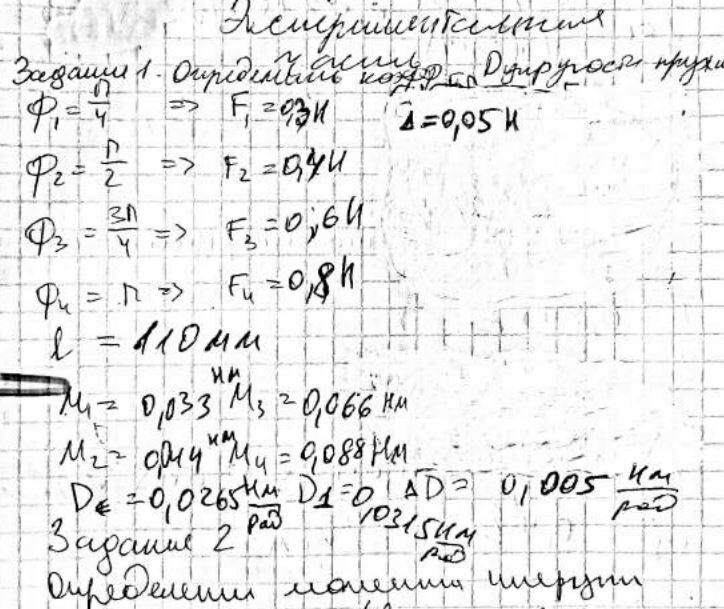 Экспериментальная
часть
Задание 1. Определить коэфф. D упругости пружи
φ₁ = П/4 => F₁ = 0,3 Н Δ = 0,05 Н
φ₂ = П/2 => F₂ = 0,4 Н
φ₃ = 3П/4 => F₃ = 0,6 Н
φ₄ = П => F₄ = 0,8 Н
l = 110 мм
M₁ = 0,033 Нм M₃ = 0,066 Нм
M₂ = 0,044 Нм M₄ = 0,088 Нм
= 0,0265 Нм/рад D1 = 0,0315 Нм/рад ΔD = 0,005 Нм/рад
Задание 2
Определении момента инерции